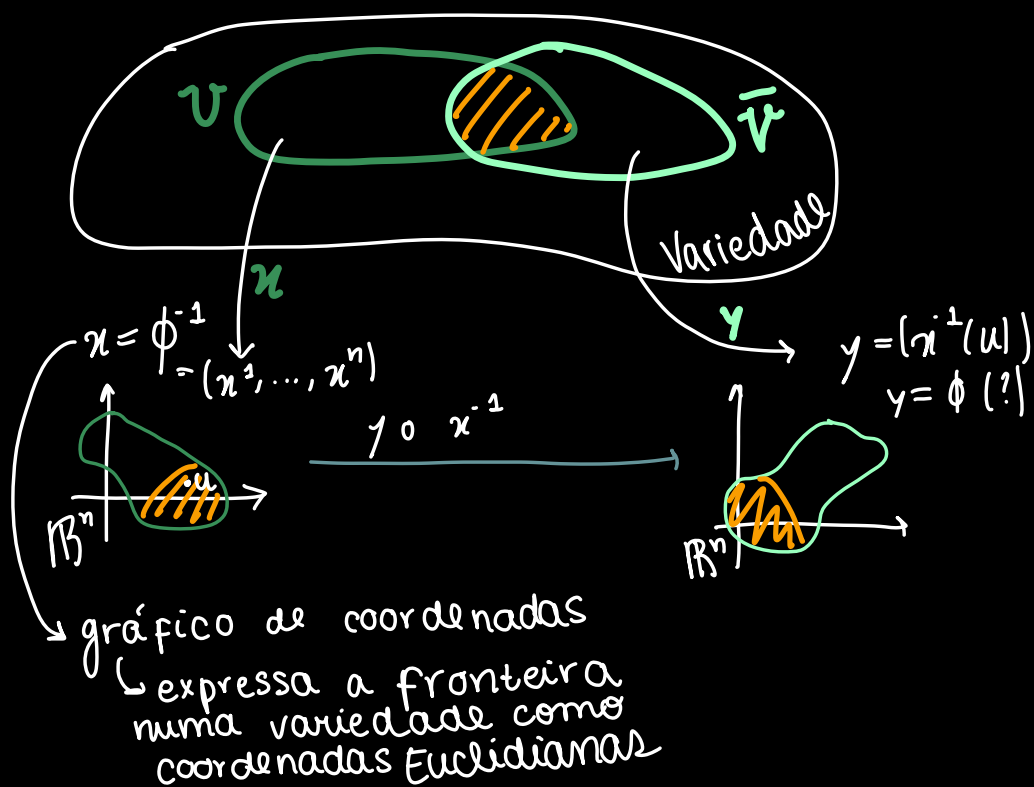 U
V̅
Variedade
x
y
x = ϕ⁻¹
= (x¹, ..., xⁿ)
y = (x⁻¹(u))
y = ϕ (?)
y o x⁻¹
.u
ℝⁿ
ℝⁿ
gráfico de coordenadas
expressa a fronteira
numa variedade como
coordenadas Euclidianas